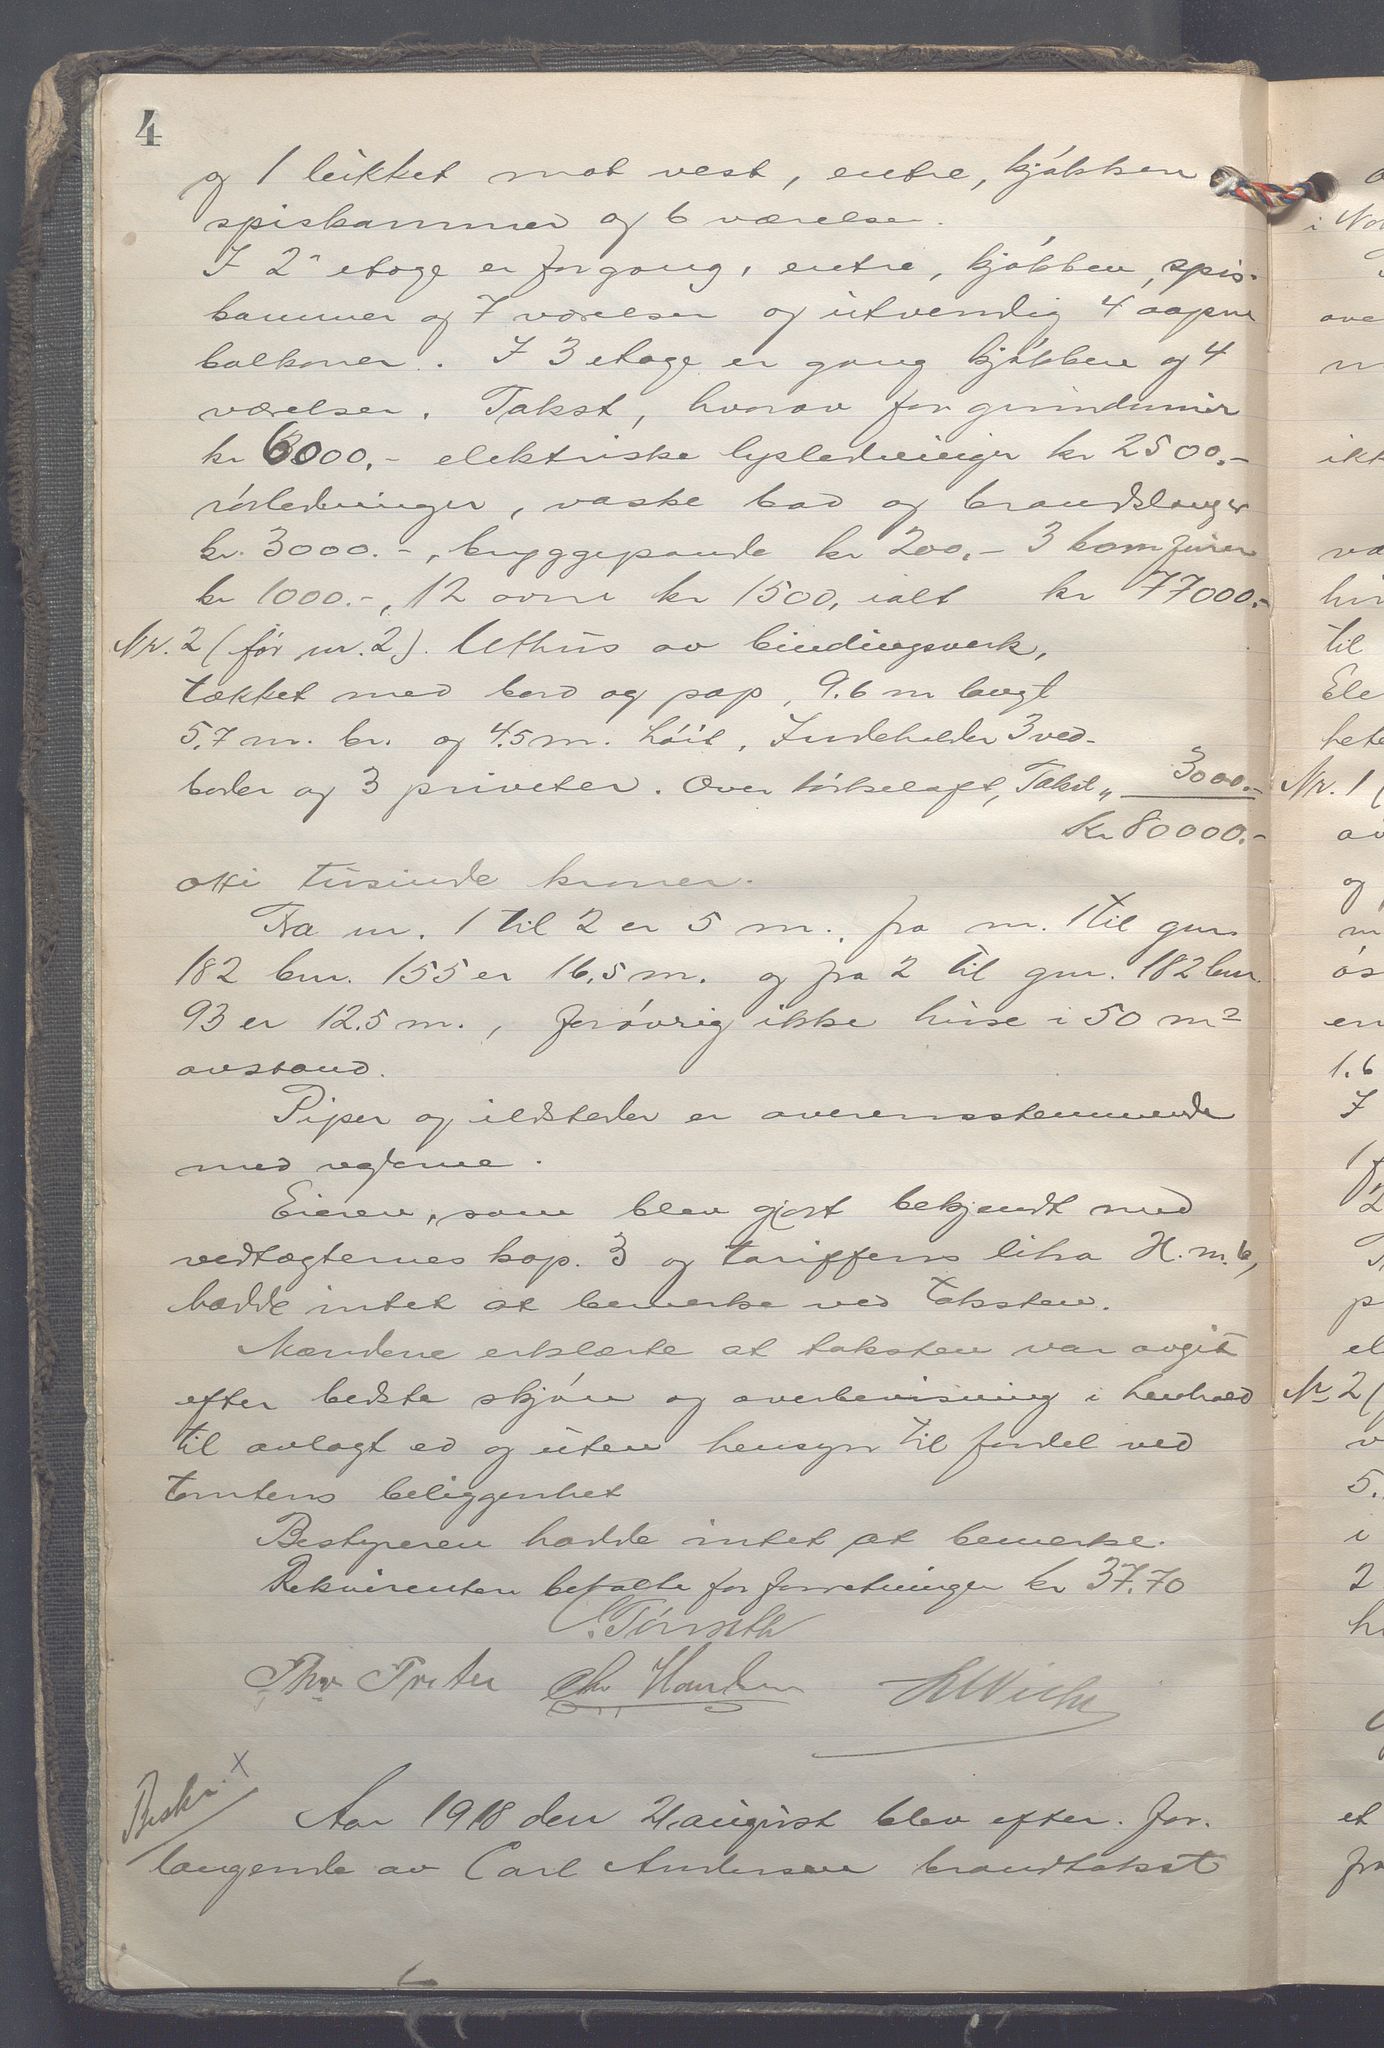 4
og 1 lukket mot vest, entre, kjøkken
spiskammer og 6 værelser.
I 2 etage er forgang, entre, kjøkken, spis-
kammer og 7 værelser og utvendig 4 aapne
balkoner. I 3 etage er gang kjøkken og 4
værelser. Takst, hvorav for grundmur
kr 6000,- elektriske lysledninger kr 2500.-
rörledninger, vaske bad og brandslanger
kr. 3000.-, bryggepande kr 200,- 3 komfurer
kr 1000.-, 12 ovne kr 1500, ialt kr 77000.-
Nr. 2 (før nr. 2). Uthus av bindingsverk,
tækket med bord og pap, 9.6 m langt
5.7 m. br. og 4.5 m. höit. Indeholder 3 ved-
boder og 3 priveter. Over törkeloft, Takst „ 3000.-
Kr 80000.-
otti tusinde kroner.
Fra nr. 1 til 2 er 5 m., fra nr. 1 til gnr.
182 bnr. 155 er 16,5 m. og fra 2 til gnr. 182 bnr.
93 er 12.5 m., forøvrig ikke huse i 50 m2
avstand.
Piper og ildsteder er overensstemmende
med reglerne.
Eieren, som blev gjort bekjendt med
vedtægternes kap. 3 og tariffens litra H. m. 6,
hadde intet at bemerke ved taksten.
Mændene erklærte at taksten var avgit
efter bedste skjøn og overbevisning i henhold
til avlagt ed og uten hensyn til fordel ved
tomtens beliggenhet
Bestyreren hadde intet at bemerke.
Rekvirenten betalte for forretningen kr 37.70
Beskr. x
Aar 1918 den 21 august blev efter. for.
langende av Carl Andersen brandtakst
i Nor
ikk
til
Ele
hete
Nr. 1 (
og
en
1.6
Nr 2 (
5.
i
2
et
fra